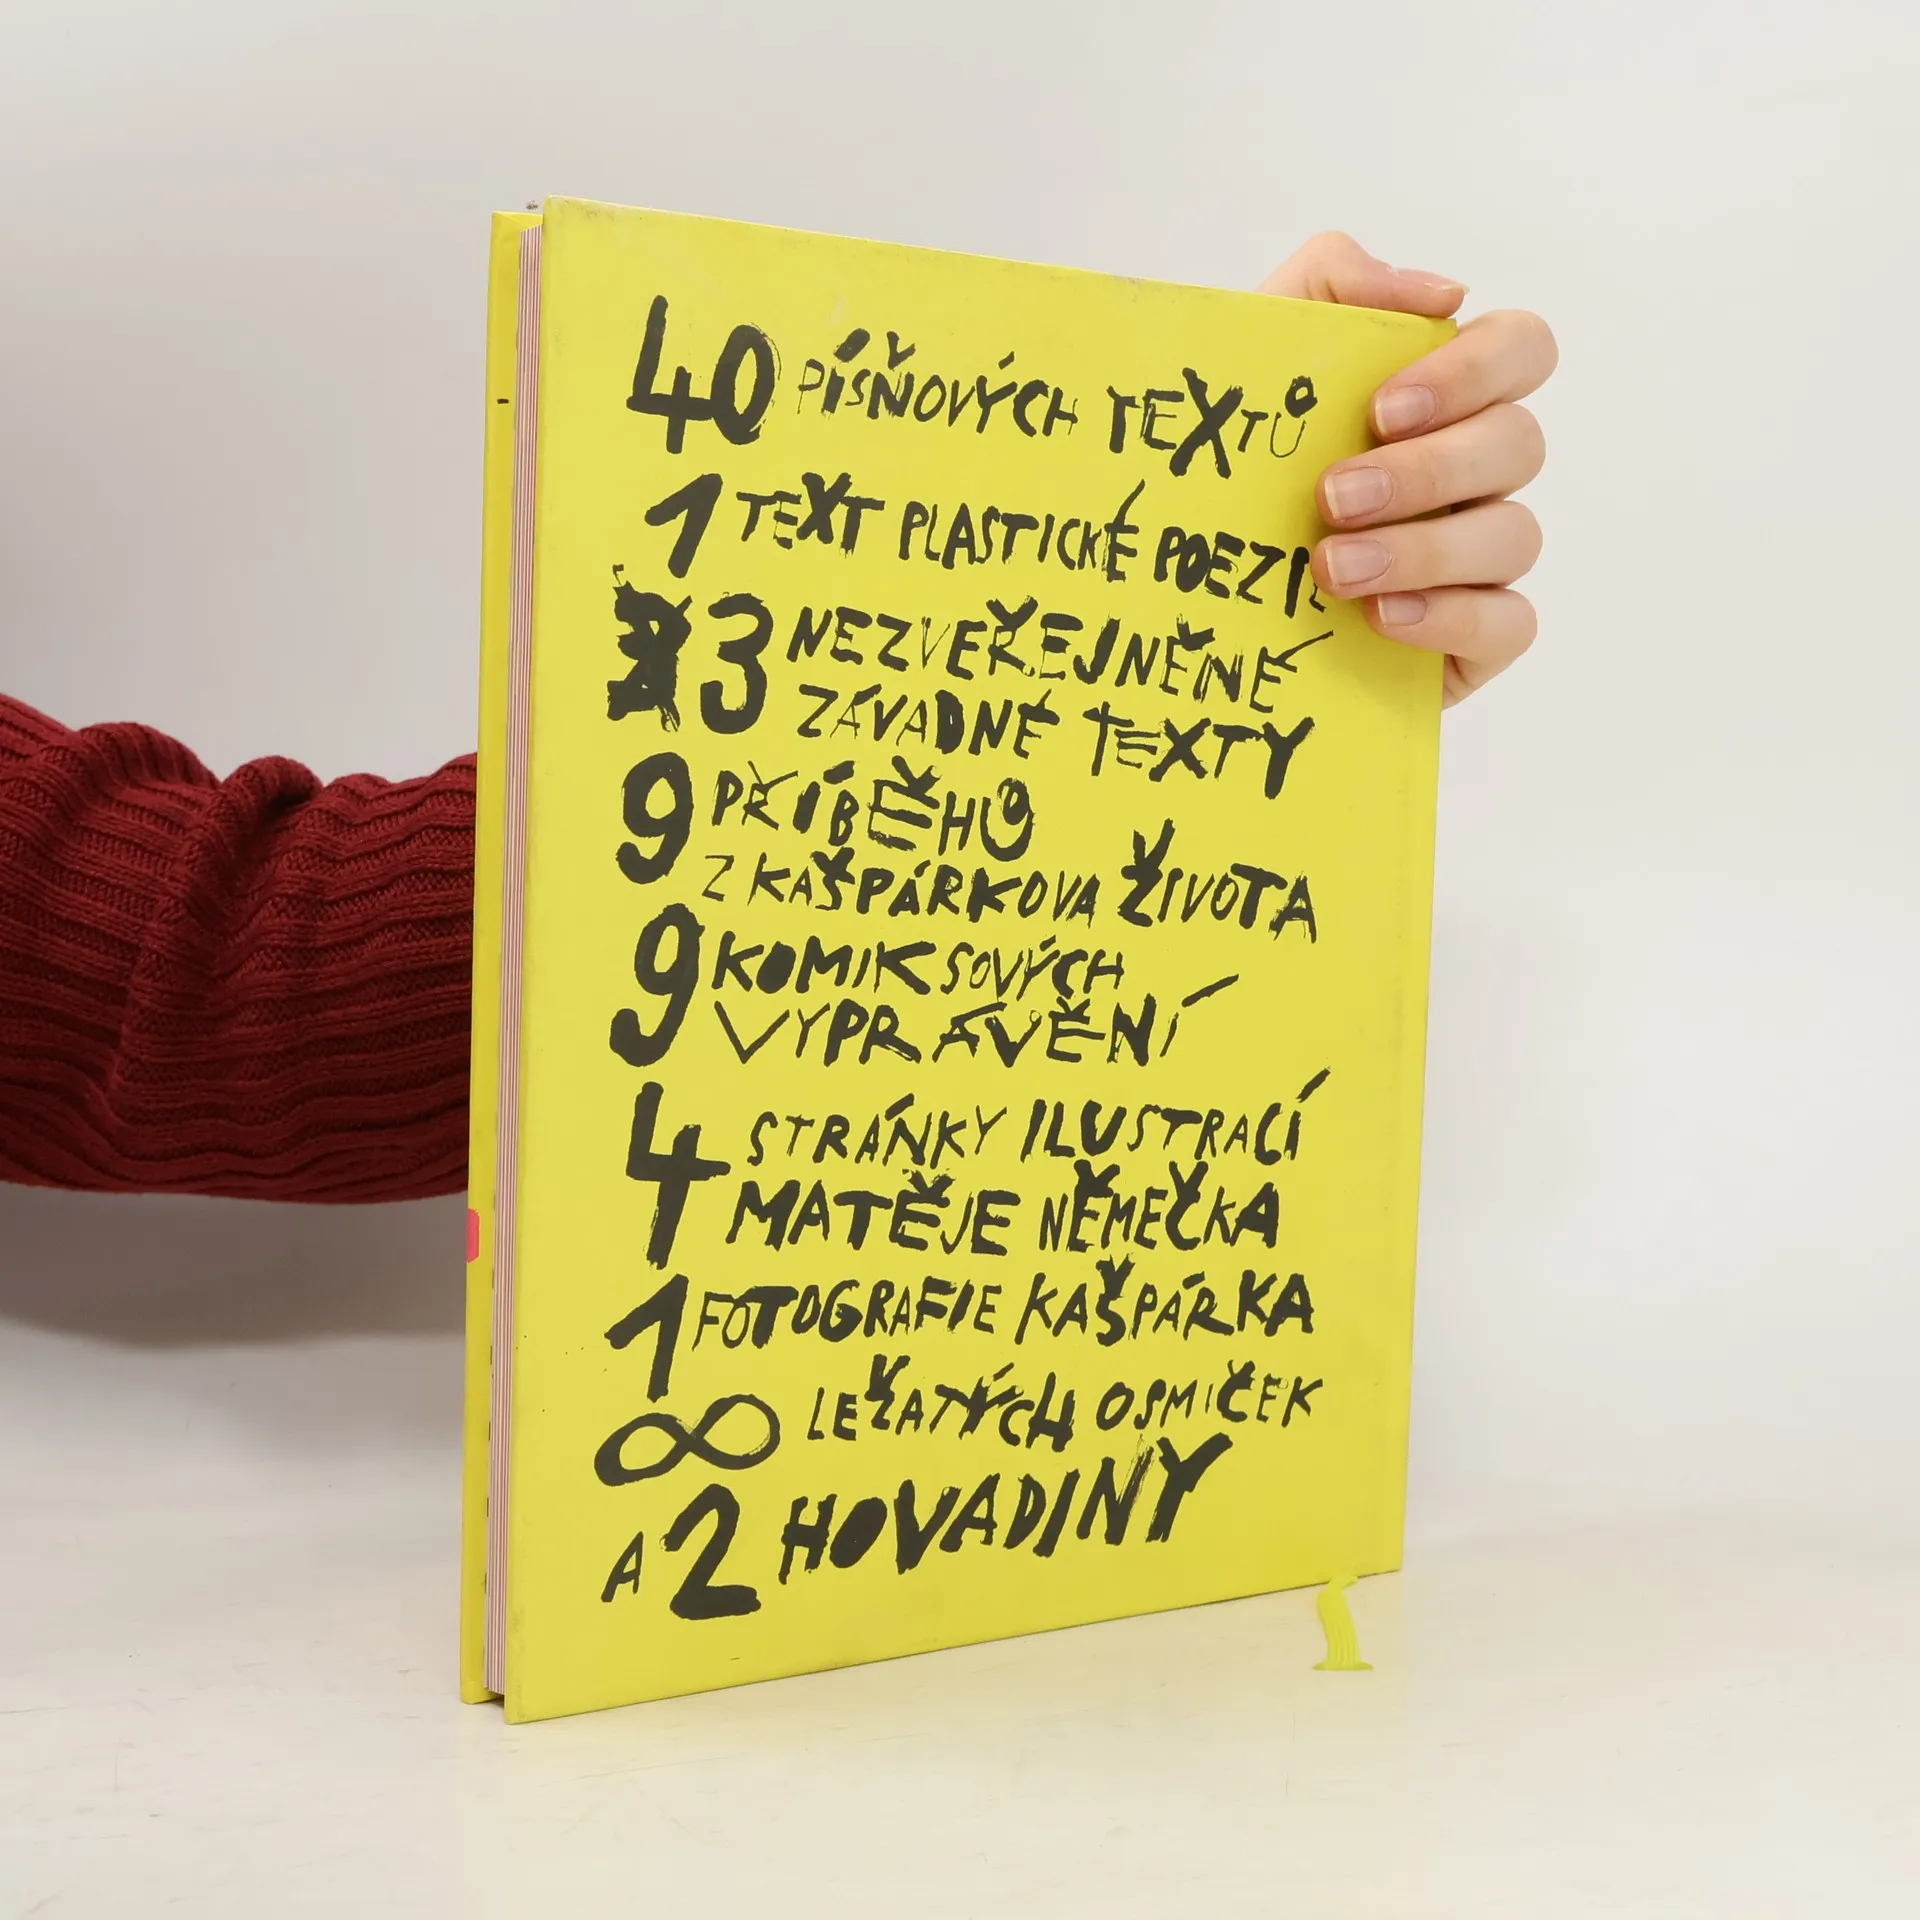 40 PÍSŇOVÝCH TEXTŮ
1 TEXT PLASTICKÉ POEZIE
3 NEZVEŘEJNĚNÉ
ZÁVADNÉ TEXTY
9 PŘÍBĚHŮ
Z KAŠPÁRKOVA ŽIVOTA
9 KOMIKSOVÝCH
VYPRÁVĚNÍ
4 STRÁNKY ILUSTRACÍ
MATĚJE NĚMEČKA
1 FOTOGRAFIE KAŠPÁRKA
∞ LEŽATÝCH OSMIČEK
A 2 HOVADINY